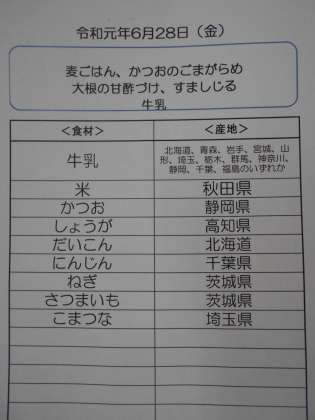 令和元年6月28日（金）
麦ごはん、かつおのごまがらめ
大根の甘酢づけ、すましじる
牛乳
＜食材＞ ＜産地＞
牛乳 北海道、青森、岩手、宮城、山
形、埼玉、栃木、群馬、神奈川、
静岡、千葉、福島のいずれか
米 秋田県
かつお 静岡県
しょうが 高知県
だいこん 北海道
にんじん 千葉県
ねぎ 茨城県
さつまいも 茨城県
こまつな 埼玉県